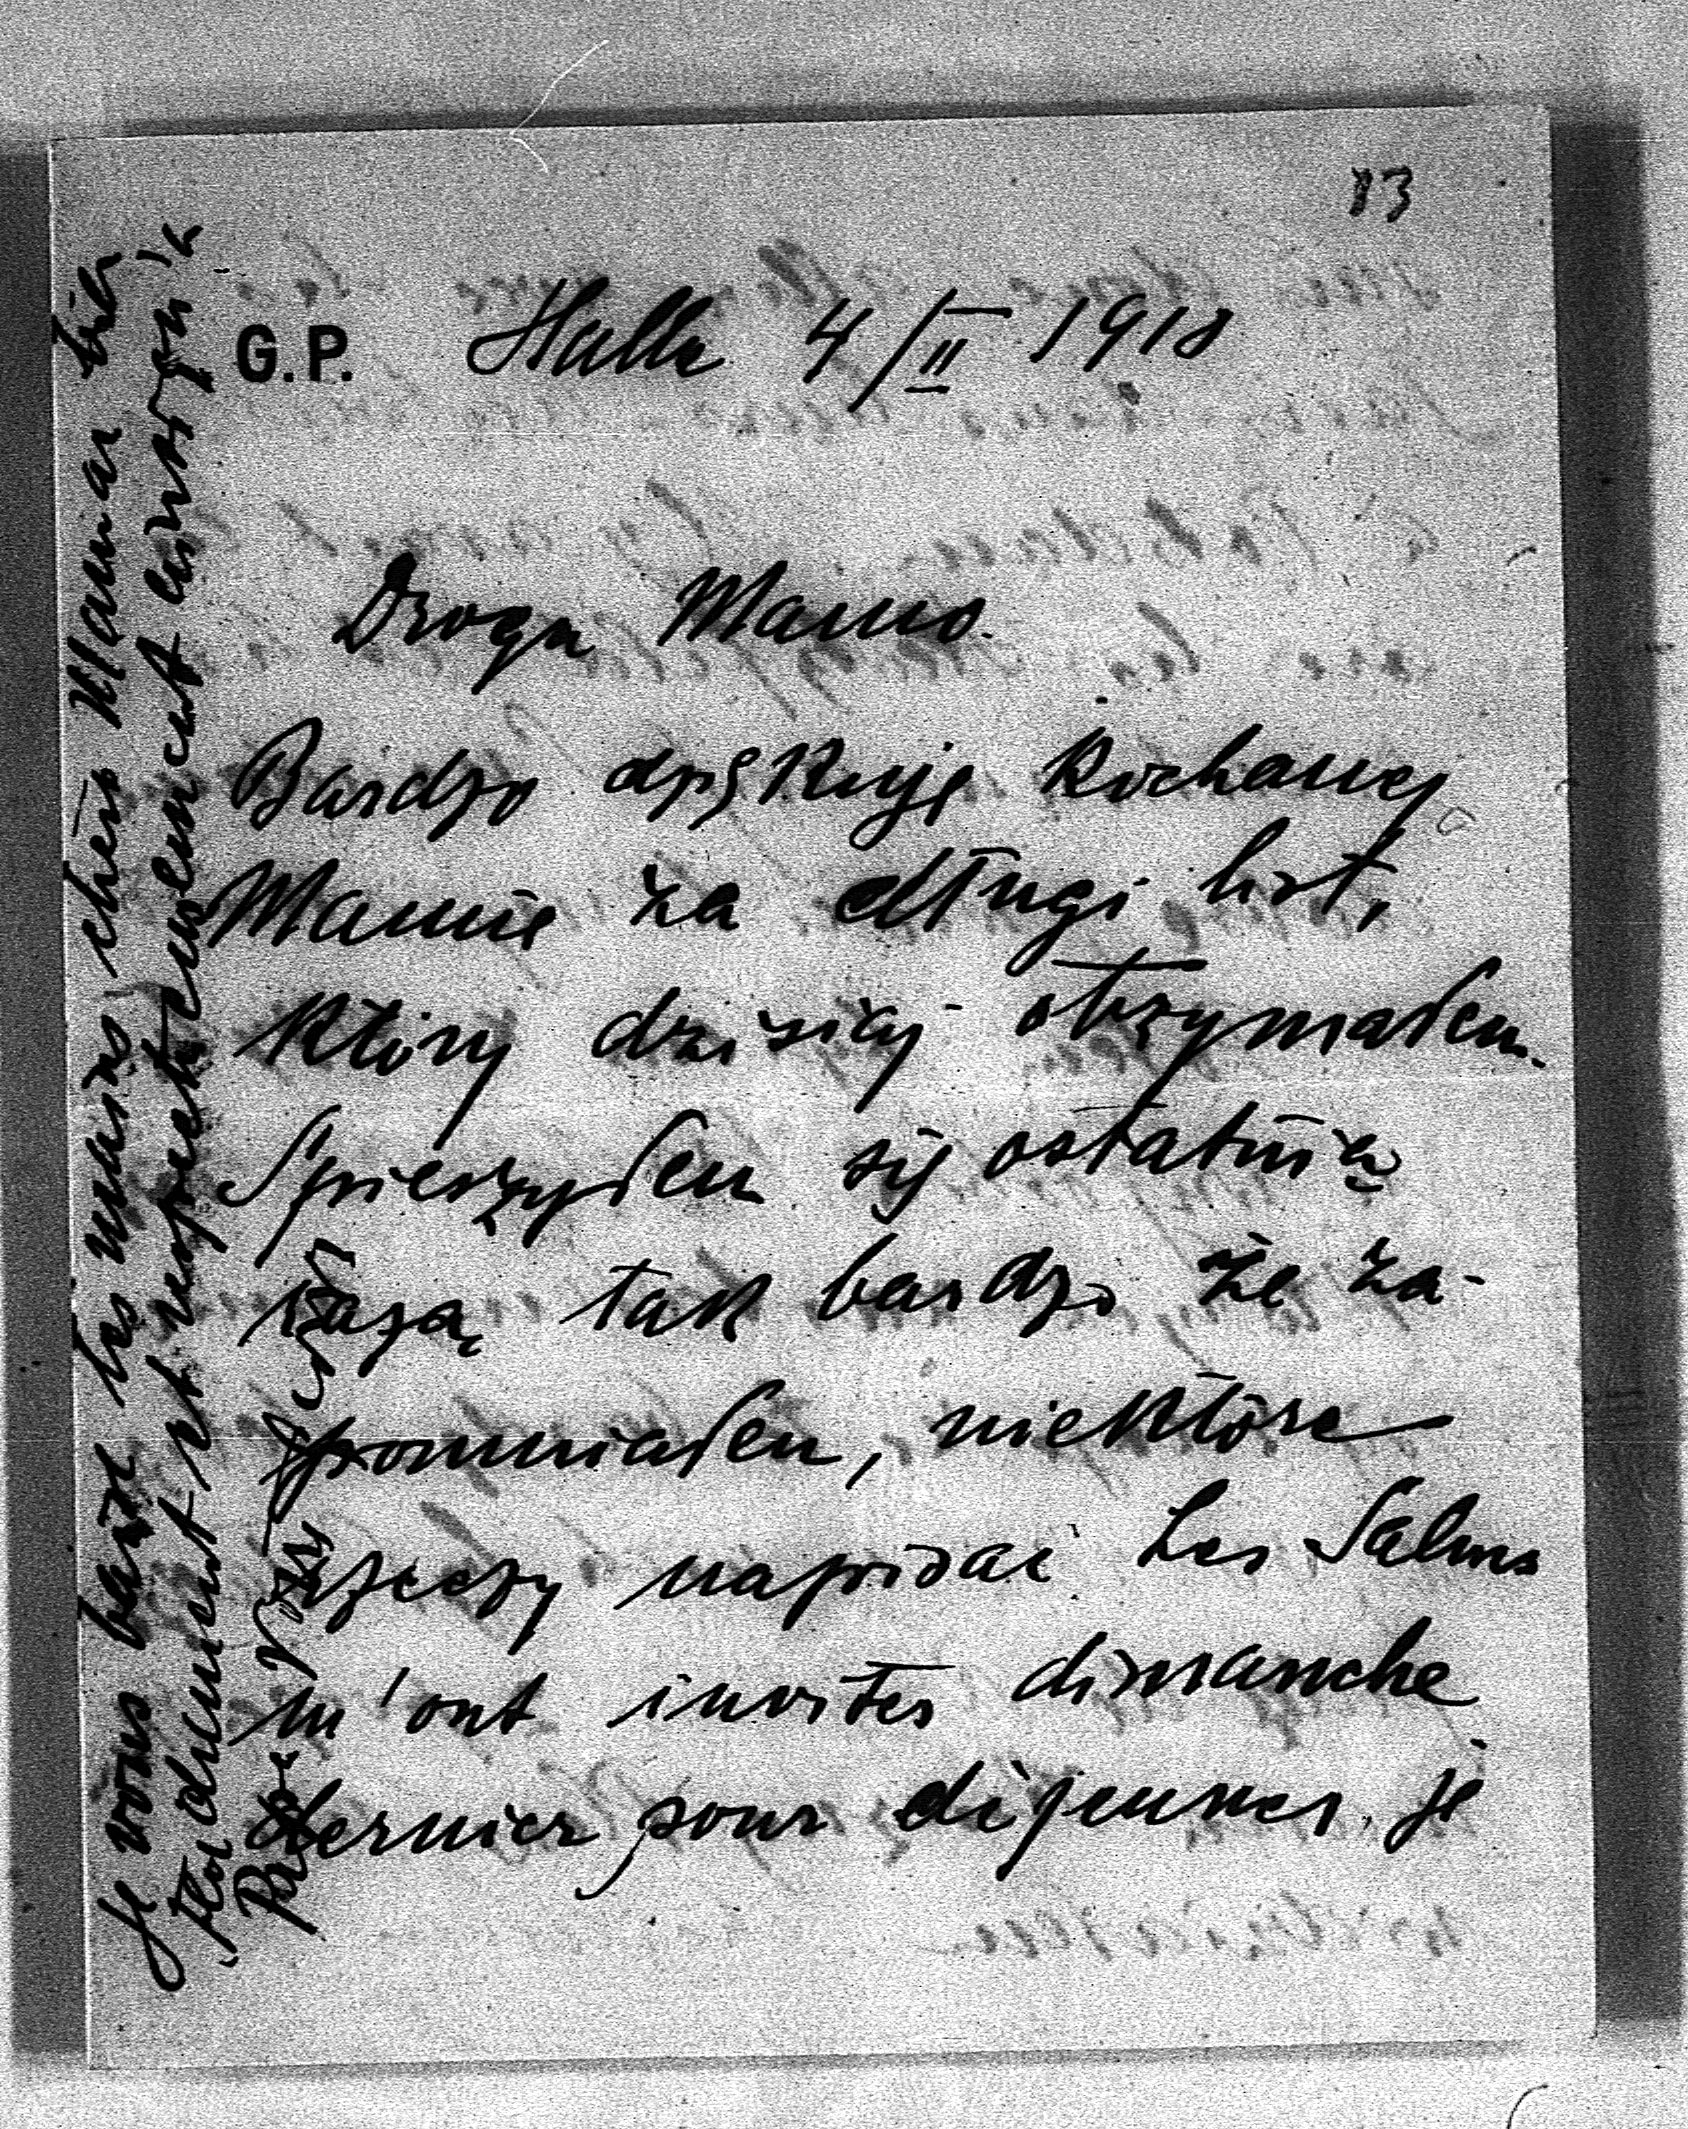 83
G.P. Halle 4/II 1918
Droga Mamo.
Bardzo dziękuję Kochanej
Mamie za długi list,
który dzisiaj otrzymałem.
Śpieszyłem się ostatnią
razą tak bardzo że za-
pomniałem, niektóre
rzeczy napisać Les Salms
m'ont invités dimanche
dernier pour déjeuner. je
Je vous baise les mains chère Maman très
tendrement et respectueusement